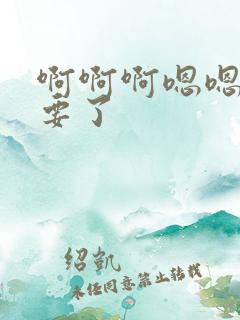 啊啊啊嗯嗯
要了
绍凯
未经同意禁止转载